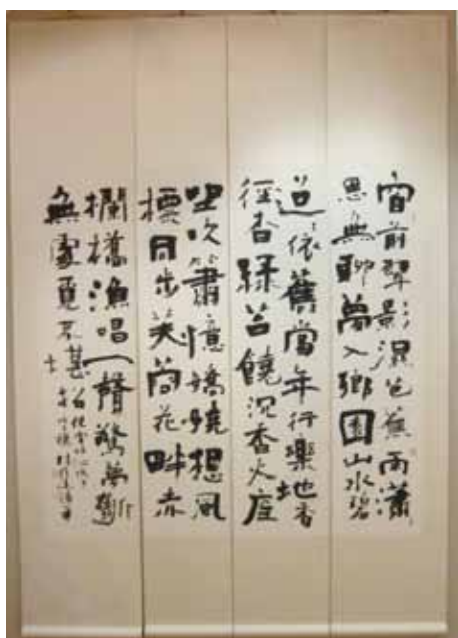 窗前翠影濕芭蕉雨瀟
思無聊夢入鄉園山水碧
迢依舊當年行樂地香
徑杳綠苔饒沉香火底
坐吹簫憶嬌嬈想風
標同步芙蓉花畔赤
欄橋漁唱一聲驚夢斷
無處覓不堪